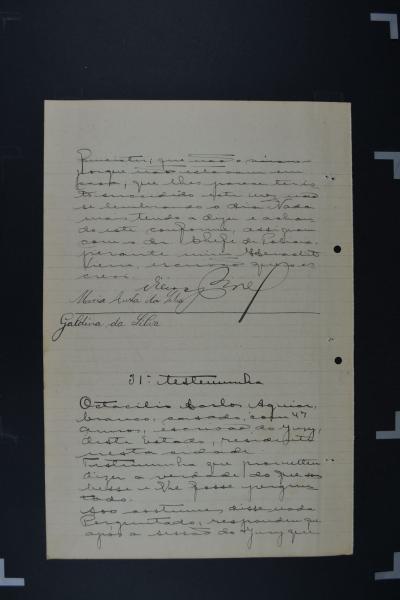 que não o viram
porque não estavam em
casa, que lhes parece ter is
to succedido este mez, não
se lembrando o dia. Nada
mais tendo a dizer e achan
do este conforme, assignam
com o dr. Chefe de Policia,
perante mim,
escrivão que o es
crevi.
Maria da Silva
Galdina da Silva
31ª testemunha
Octacilio Carlos Aguiar,
branco, casado, com 47
annos, escrivão do Jury,
deste Estado, residente
nesta cidade.
Testemunha que prometteu
dizer a verdade do que sou
besse e lhe fosse pergun
tado.
Aos costumes disse nada
Perguntado, respondeu que
após a sessão do Jury que